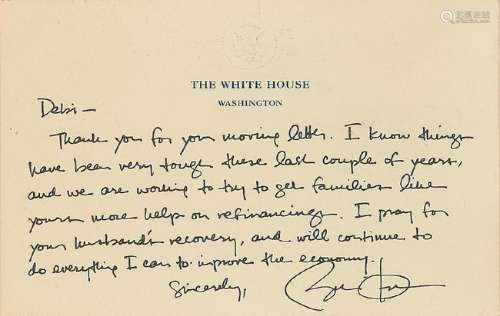 THE WHITE HOUSE
WASHINGTON
Debi -
Thank you for your moving letter. I know things
have been very tough these last couple of years,
and we are working to try to get families like
yours more help on refinancings. I pray for
your husband's recovery, and will continue to
do everything I can to improve the economy.
Sincerely,